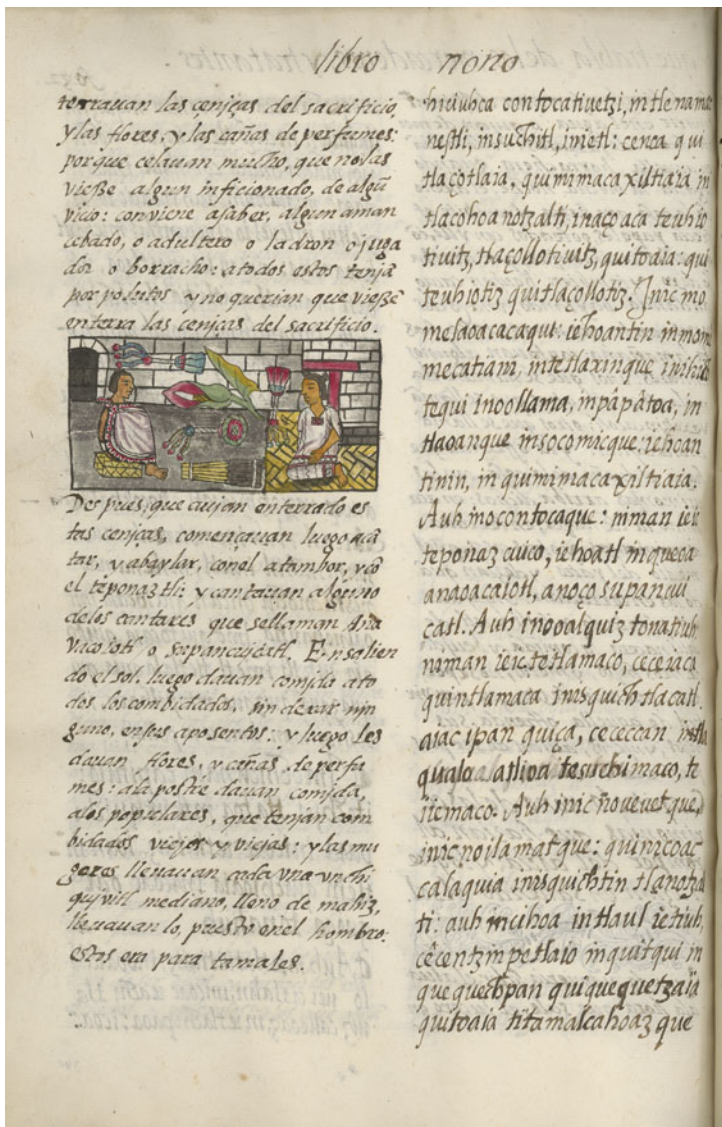 libro nono
terrauan las ceniças del sacrificio,
y las flores, y las cañas de perfumes:
porque celauan mucho, que no las
vieße algun inficionado, de algũ
vicio: conviene asaber, algun aman
cebado, o adultero o ladron o juga
dor o borracho: atodos estos tenjã
por polutos y no querian que vießẽ
enterra las ceniças del sacrificio.
Despues, que aujan enterrado es
tas ceniças, començauan luego acã
tar, y abaylar, conel atambor, y cõ
el teponaztli: y cantauan alguno
delos cantares que sellaman Ana
vacaiotl o xopancuicatl. En salien
do el sol. luego dauan comida ato
dos los combidados, sin dexar nin
guno, ensus aposentos: y luego les
dauan flores, y cañas de perfu
mes: ala postre dauan comida,
alos populares, que tenjan com
bidados viejos y viejas: y las mu
geres lleuauan cada vna vn chi
qujvitl mediano, lleno de mahiz,
lleuauan lo, puesto enel hombro:
estos era para tamales.
hiciuhca contocatiuetzi, in tlenama
nestli, in suchitl, in ietl: cenca qui
tlaçotlaia, quimimacaxiltiaia in
tlacohoanotzalti, in aço aca teuhio
tiuitz, tlaçollotiuitz, quitoaia: qui
teuhiotiz quitlaçollotiz. Inic mo
melaoacacaqui: iehoantin in mome
mecatiani, in tetlaxinque in ichte
tequi in oollama, in pàpàtoa, in
tlaoanque in socomicque. iehoan
tinin, in quimimacaxiltiaia.
Auh in ocontocaque: niman ieic
teponazcuico, iehoatl in queoa
anaoacaiotl, anoço supancui
catl. Auh in ooalquiz tonatiuh
niman ieic tetlamaco, ceceiaca
quintlamaca inisquich tlacatl.
aiac ipan quiça, cececcan in tla
qualoa atlioa tesuchimaco, te
iiemaco. Auh inic no vevetque,
inic no ilamatque: quinicoac
calaquia inisquichtin tlanotzal
ti: auh in cihoa intlaul ietiuh,
cêcentzinpetlaio inquitqui in
quequechpan quiquequetzaia
quitoaia titamalcahoaz que